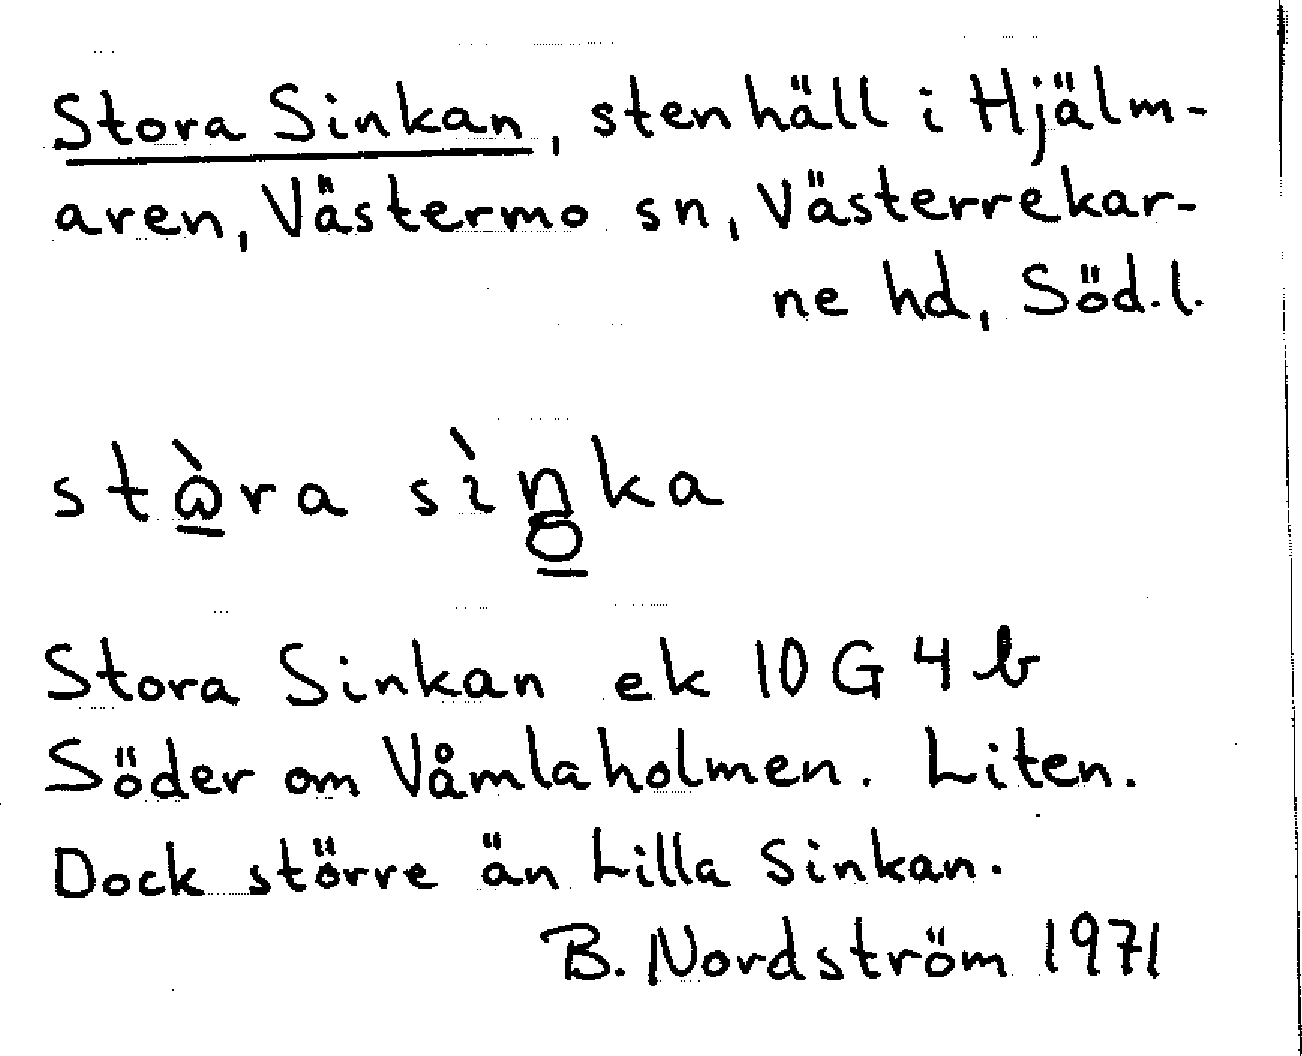 Stora Sinkan, stenhäll i Hjälm-
aren, Västermo sn, Västerrekar-
ne hd, Söd.l.
sìŋka
Stora Sinkan ek 10 G 4 b
Söder om Våmlaholmen. Liten.
Dock större än Lilla Sinkan.
B. Nordström 1971